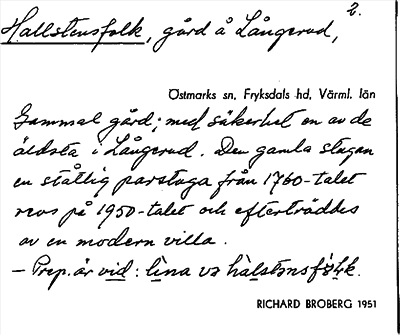 2.
Hallstensfolk, gård å Långerud,
Östmarks sn, Fryksdals hd, Värml. län
Gammal gård; med säkerhet en av de
äldsta i Långerud. Den gamla stugan
en ståtlig parstuga från 1760-talet
revs på 1950-talet och efterträddes
av en modern villa.
– Prep. är vid: lina va
RICHARD BROBERG 1951